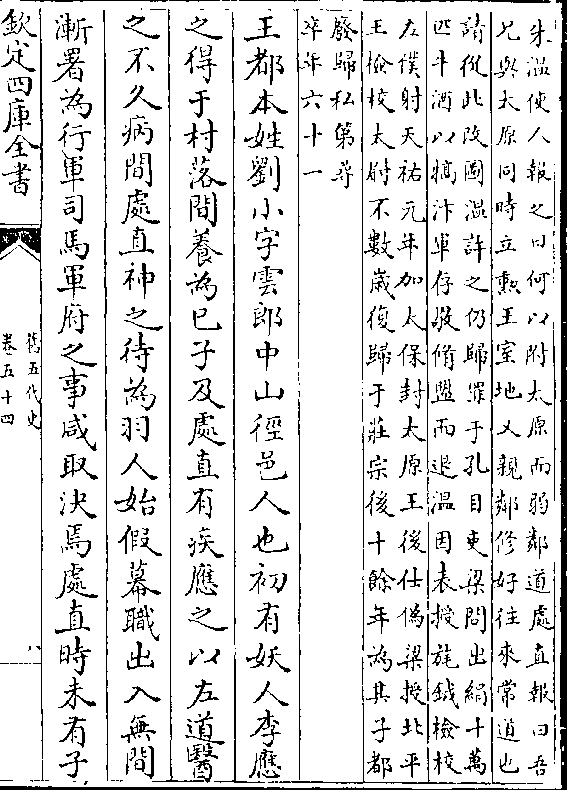 朱温使人報之曰何以附太原而弱鄰道處直報曰吾
兄與太原同時立勲王室地又親鄰修好往來常道也
請從此改圖温許之仍歸罪于孔目吏梁問出絹十萬
匹牛酒以犒汴軍存敬脩盟而退温因表授旄鉞檢校
左僕射天祐元年加太保封太原王後仕偽梁授北平
王檢校太尉不數嵗復歸于莊宗後十餘年為其子都
廢歸私第尋
卒年六十一
王都本姓劉小字雲郎中山徑邑人也初有妖人李應
之得于村落間養為己子及處直有疾應之以左道醫
之不久病間處直神之待為羽人始假幕職出入無間
漸署為行軍司馬軍府之事咸取決焉處直時未有子
欽定四庫全書
舊五代史
卷五十四
八